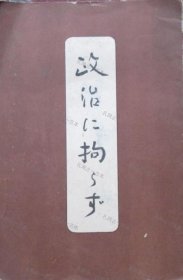 政治に拘らず